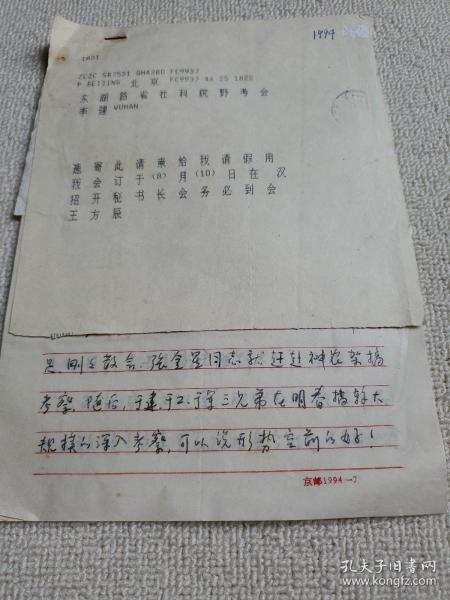 1994
ZCZC SR2531 BHA280 FC9937
P BEIJING 北京 FC9937 44 25 1820
东湖路省社科院野考会
李建 WUHAN
速寄此请柬给我请假用
我会订于(8)月(10)日在汉
招开秘书长会务必到会
王方辰
是刚刚散会,张金星同志就迁赴神农架搞
考察,随后,于建、于工、于军三兄弟在明春搞较大
规模的深入考察,可以说形势空前的好!
京邮1994—7
孔夫子旧书网
www.kongfz.com